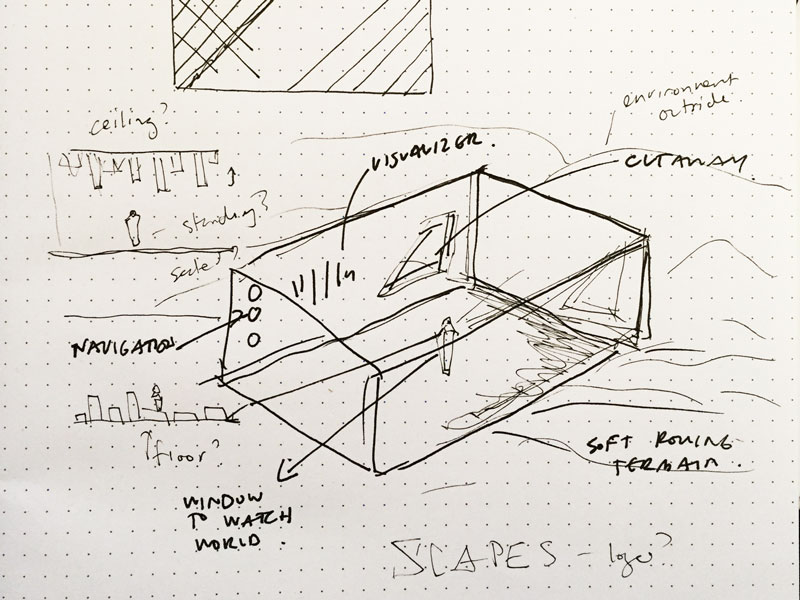 ceiling?
environment
outside.
VISUALIZER.
CUTAWAY.
standing?
scale?
NAVIGATION
floor?
SOFT ROLLING
TERRAIN.
WINDOW
TO WATCH
WORLD.
SCAPES - logo?